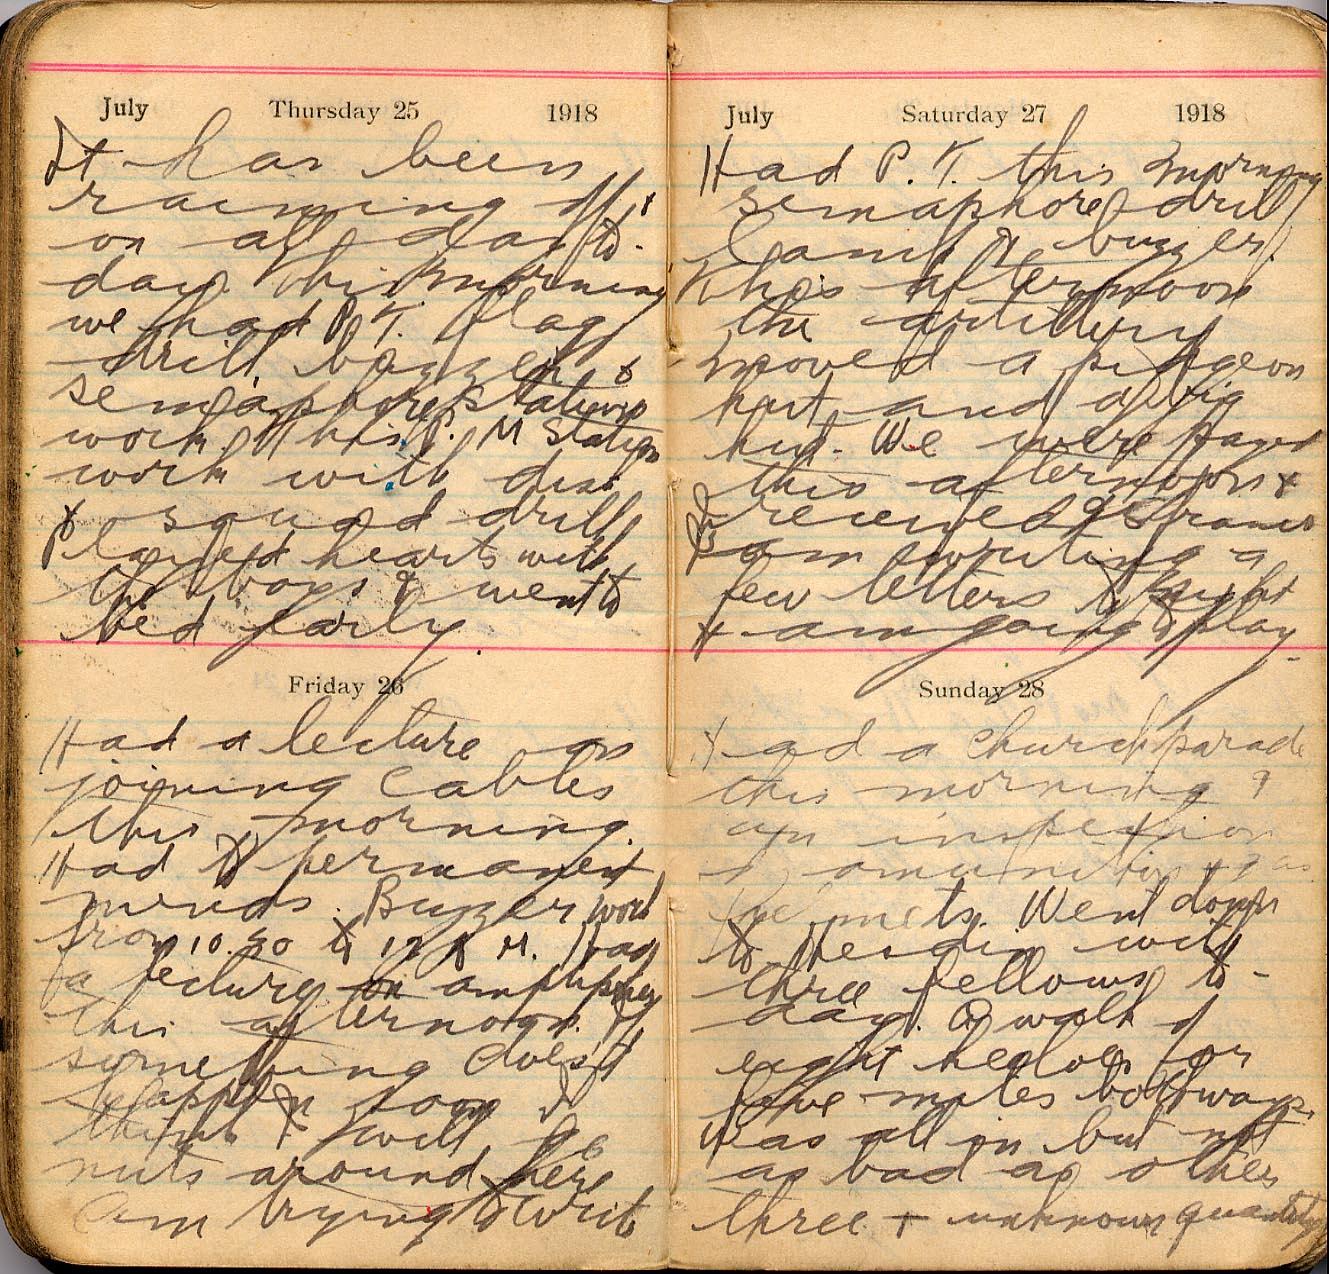 July Thursday 25 1918
It has been
raining off &
on all day to-
day. This morning
we had P. T. flag
drill buzzer, &
semaphore station
work. This P. M Station
work with disc
& squad drill
played hearts with
the boys & went to
bed early.
Friday 26
Had a lecture on
joining Cables
this morning.
Had permanent
Buzzer work
from 10.30 to 12 M. Had
a lecture on amplifier
this afternoon. If
something does't
happen soon I
think I will go
nuts around here
Am trying to write
July Saturday 27 1918
Had P. T. this morning
semaphore drill
lamp & buzzer.
This afternoon
the artillery
moved a pidgeon
hut and a big
hut. We were payed
this afternoon &
received francs
am writing a
few letters to night
& am going to play
Sunday 28
Had a Church parade
this morning &
an inspection
amunition & gas
helmets. Went down
to with
three fellows to-
day. A walk of
eight or
five miles bothways.
Was all in but not
as bad as other
three + unknown quantity